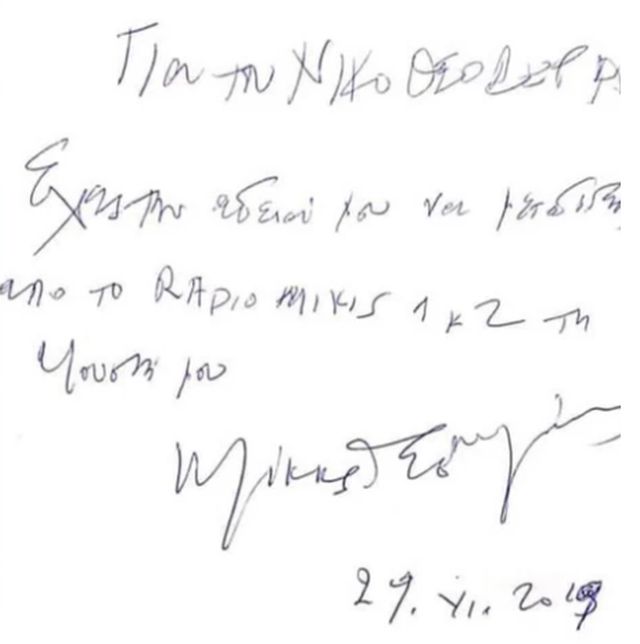 Για τη ΝΙΚΟ ΘΕΟΔΩΡ
Έχεις την άδειά μου να μεταδίδεις
απο το RADIO MIKIS 1 κ 2 τη
Μουσική μου
Μίκης Θεοδωρ
29. XI. 2018